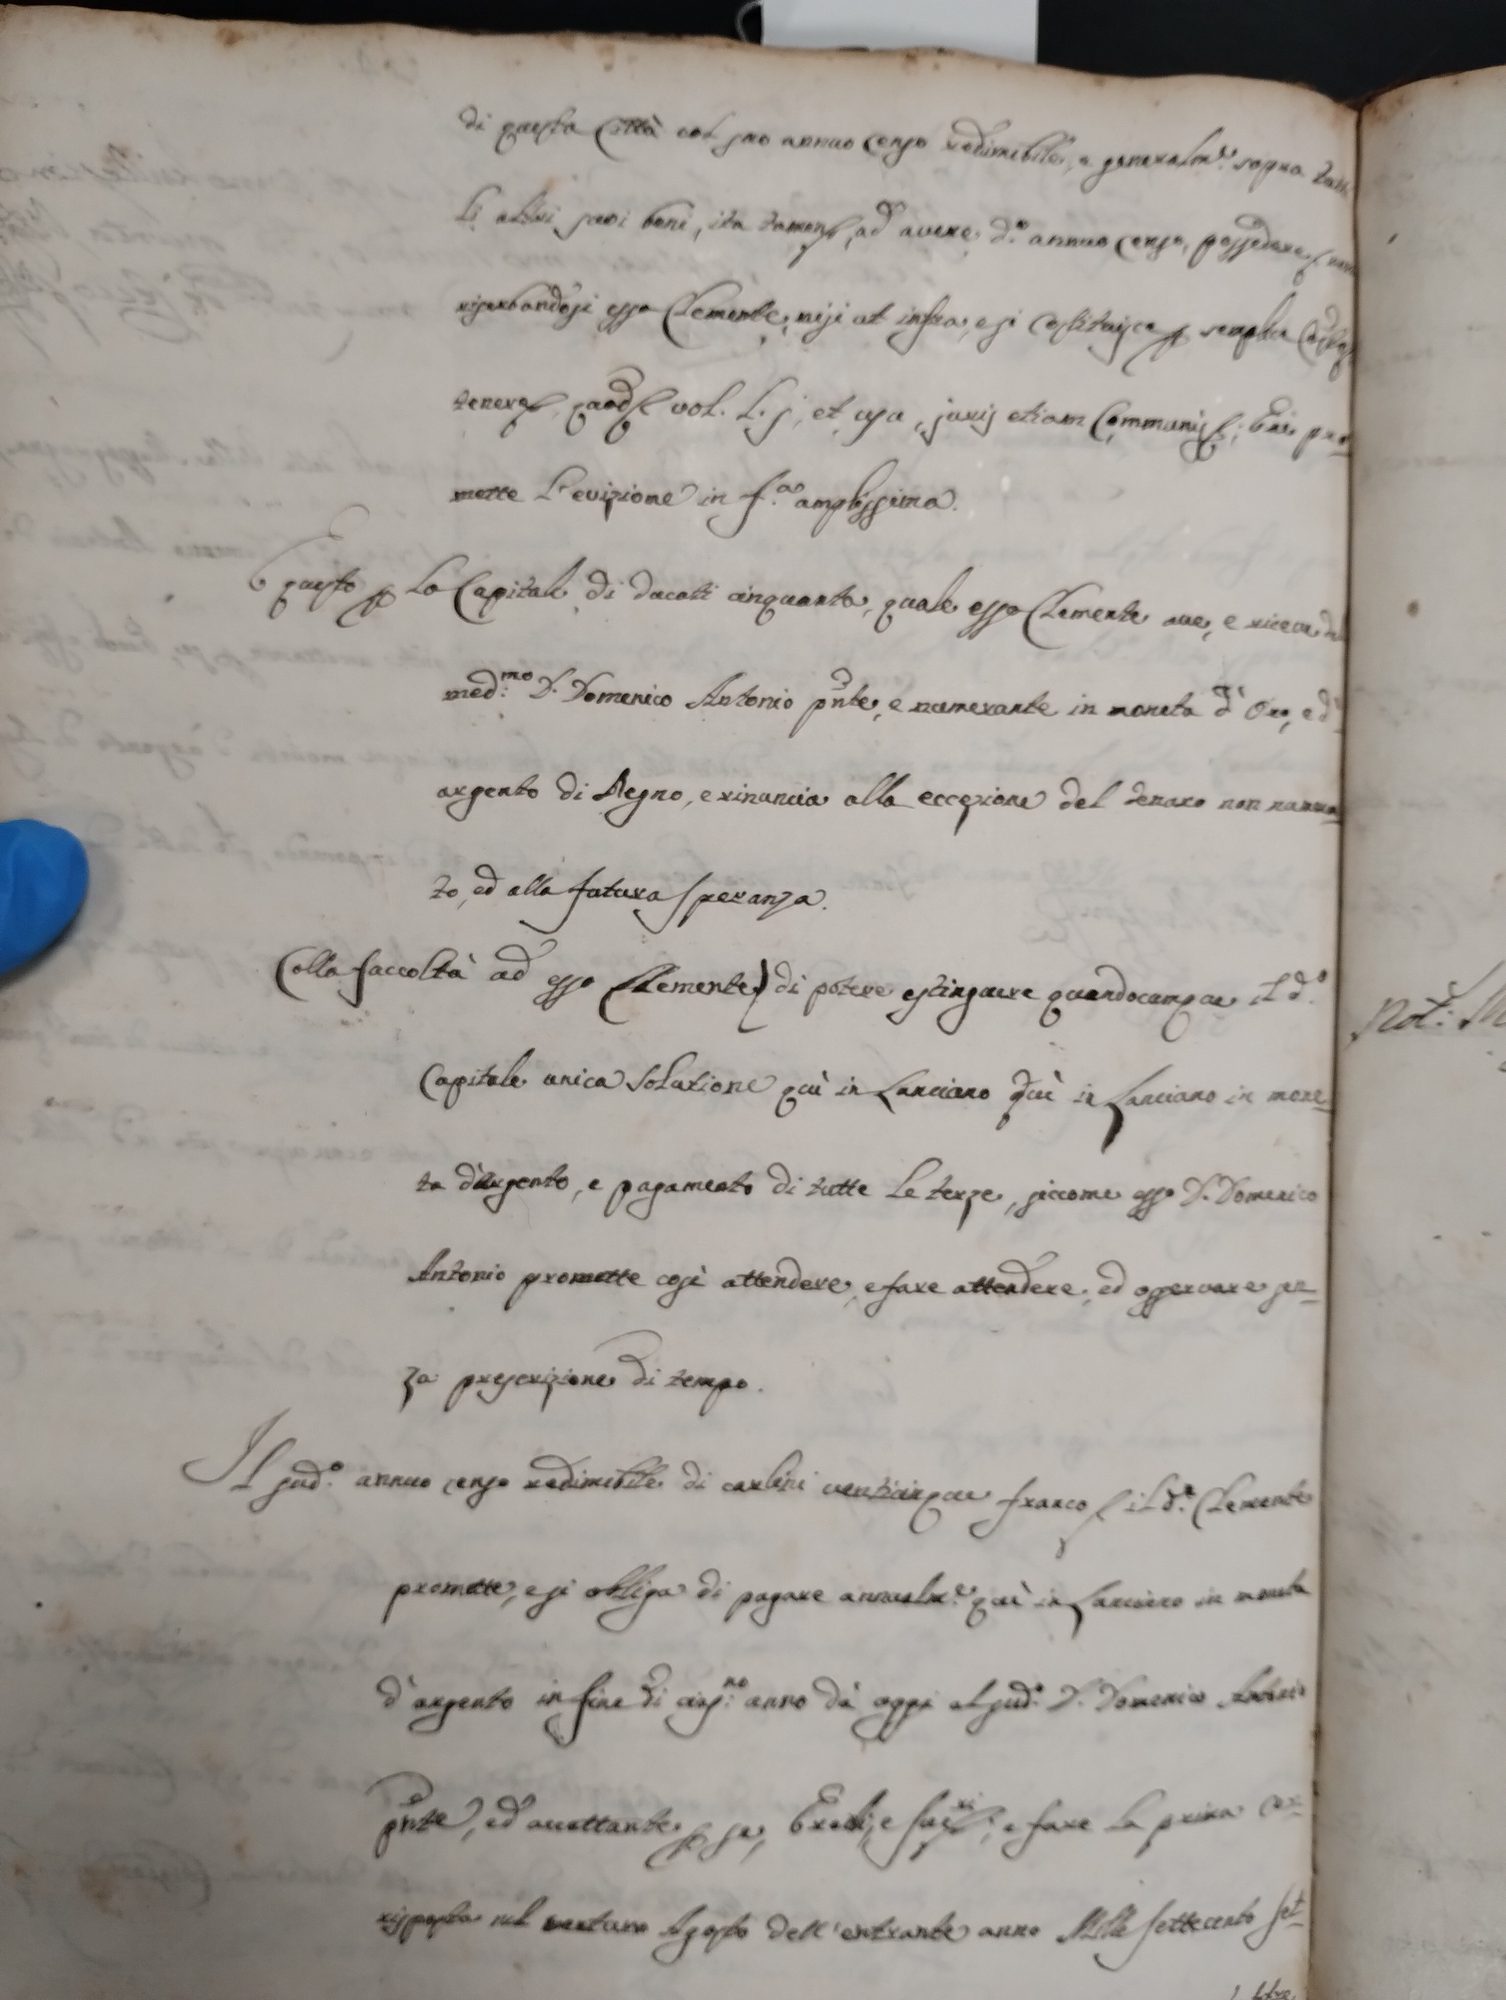 di questa Città col suo annuo censo redimibile, e generalm.te sopra tutti
li altri suoi beni, ita tamen, ad avere d.o annuo censo, possedere
riserbandosi esso Clemente, nisi ut infra, e si costituisce semplice
tenere quod vol. et usu juris etiam Communis; E ne pro=
mette l'evizione in f.a amplissima.
E questo p lo Capitale di ducati cinquanta, quale esso Clemente ave, e riceve dal
med:mo D. Domenico Antonio pnte, e numerante in moneta d'Oro, ed
argento di Regno, e rinuncia alla eccezione del denaro non numera=
to, ed alla futura speranza.
Colla faccoltà ad esso Clemente di potere estinguere quandocumque il d.o
Capitale unica solutione quì in Lanciano quì in Lanciano in mone=
ta d'argento, e pagamento di tutte le terze, siccome esso D. Domenico
Antonio promette così attendere, e fare attendere, ed osservare sen=
za prescrizione di tempo.
Il sud.o annuo censo redimibile di carlini venticinque franco il d.o Clemente
promette, e si obliga di pagare annualm.e quì in Lanciano in moneta
d'argento in fine di cias:no anno dà oggi al sud.o D. Domenico Antonio
pnte, ed accettante p se, Eredi, e e fare la prima cor=
risposta nel venturo Agosto dell'entrante anno Mille settecento set=
Not: